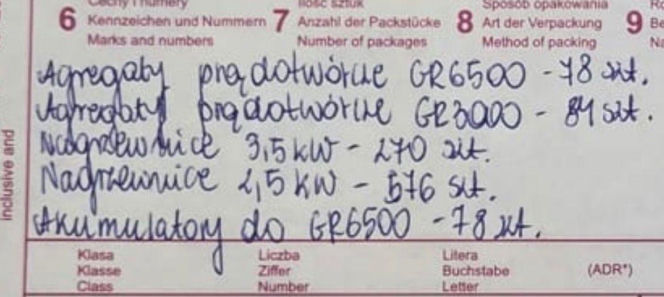 6 Cechy i numery 7 Ilość sztuk 8 Sposób opakowania 9
Kennzeichen und Nummern Anzahl der Packstücke Art der Verpackung
Marks and numbers Number of packages Method of packing
Agregaty prądotwórcze GR6500 - 78 szt.
Agregaty prądotwórcze GR3000 - 84 szt.
Nagrzewnice 3,5 kW - 270 szt.
Nagrzewnice 2,5 kW - 576 szt.
Akumulatory do GR6500 - 78 szt.
inclusive and
Klasa Liczba Litera
Klasse Ziffer Buchstabe (ADR*)
Class Number Letter